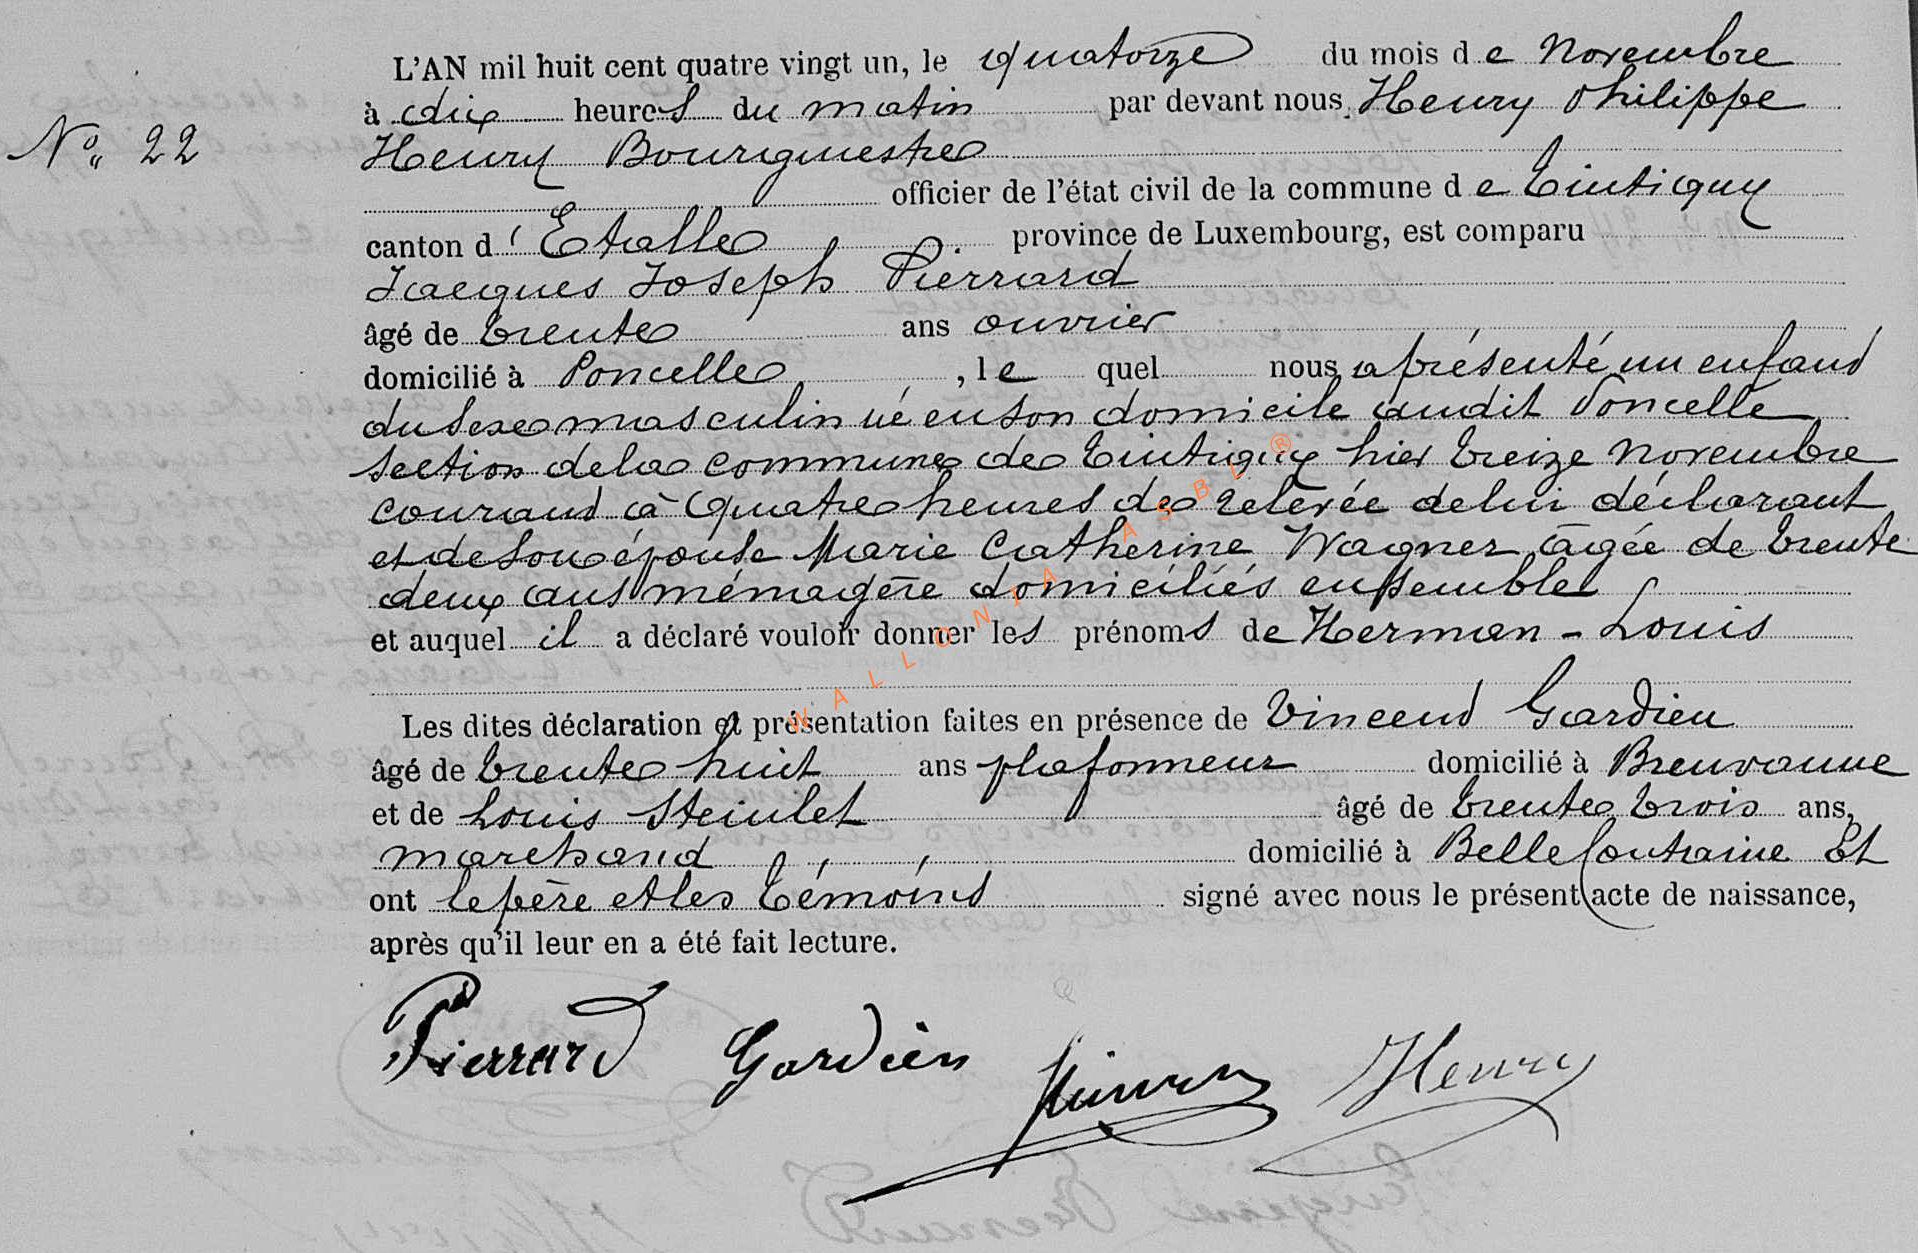 L'AN mil huit cent quatre vingt un, le quatorze du mois de Novembre
à dix heures du matin par devant nous Henry Philippe
N° 22
Henry Bourgmestre
officier de l'état civil de la commune de Tintigny
canton d'Etalle province de Luxembourg, est comparu
Jacques Joseph Pierrard
âgé de trente ans ouvrier
domicilié à Poncelle, le quel nous a présenté un enfand
du sexe masculin né en son domicile audit Poncelle
section de la commune de Tintigny hier treize novembre
courand à quatre heures de relevée de lui déclarant
et de son épouse Marie Catherine Wagner, âgée de trente
deux ans ménagère domiciliés ensemble
et auquel il a déclaré vouloir donner les prénoms de Herman - Louis
Les dites déclaration et présentation faites en présence de Vincend Gardien
âgé de trente huit ans plafonneur domicilié à Breuvanne
et de Louis Steinlet âgé de trente trois ans,
marchand domicilié à Bellefontaine Et
ont le père et les témoins signé avec nous le présent acte de naissance,
après qu'il leur en a été fait lecture.
Pierrard Gardien Henry
WALLONIA ASBL ®